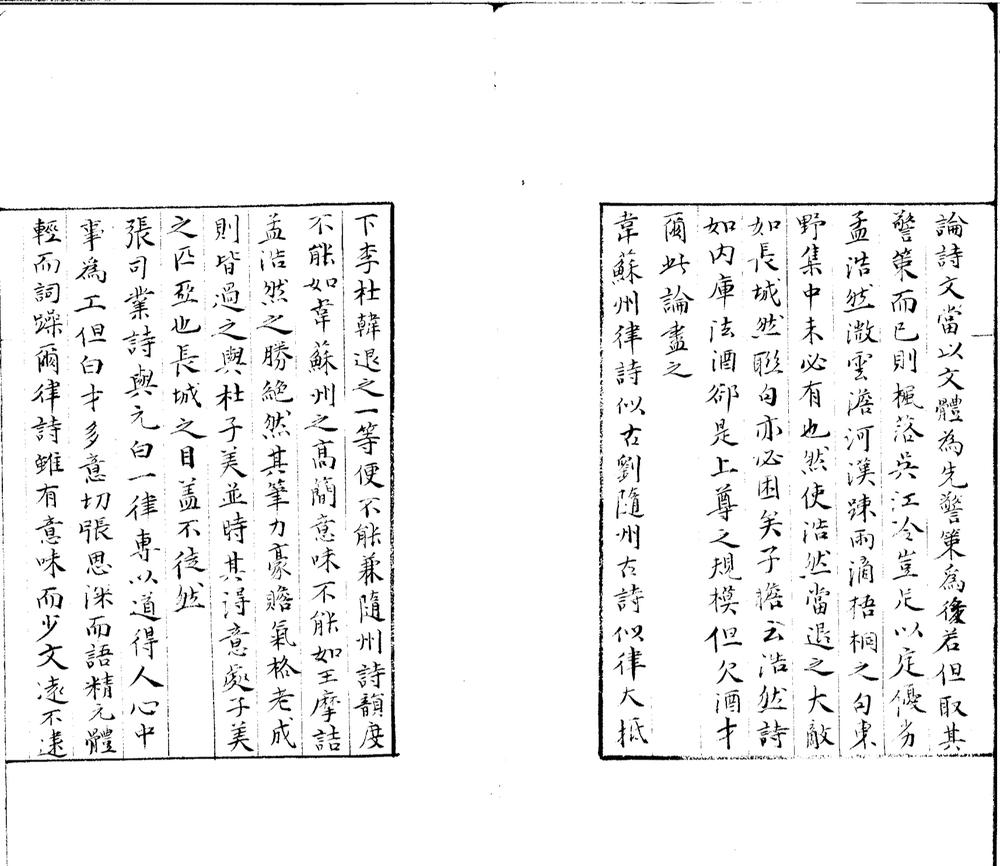 論詩文當以文體為先警策為後若但取其
警策而已則楓落吳江冷豈足以定優劣
孟浩然微雲澹河漢踈雨滴梧桐之句東
野集中未必有也然使浩然當退之大敵
如長城然聮句亦必困矣子瞻云浩然詩
如内庫法酒却是上尊之規模但欠酒才
爾此論盡之
韋蘇州律詩似古劉隨州古詩似律大抵
下李杜韓退之一等便不能兼隨州詩韻度
不能如韋蘇州之高簡意味不能如王摩詰
孟浩然之勝絶然其筆力豪贍氣格老成
則皆過之與杜子美並時其得意處子美
之匹亞也長城之目盖不徒然
張司業詩與元白一律專以道得人心中
事為工但白才多意切張思深而語精元體
輕而詞躁爾律詩雖有意味而少文逺不逮